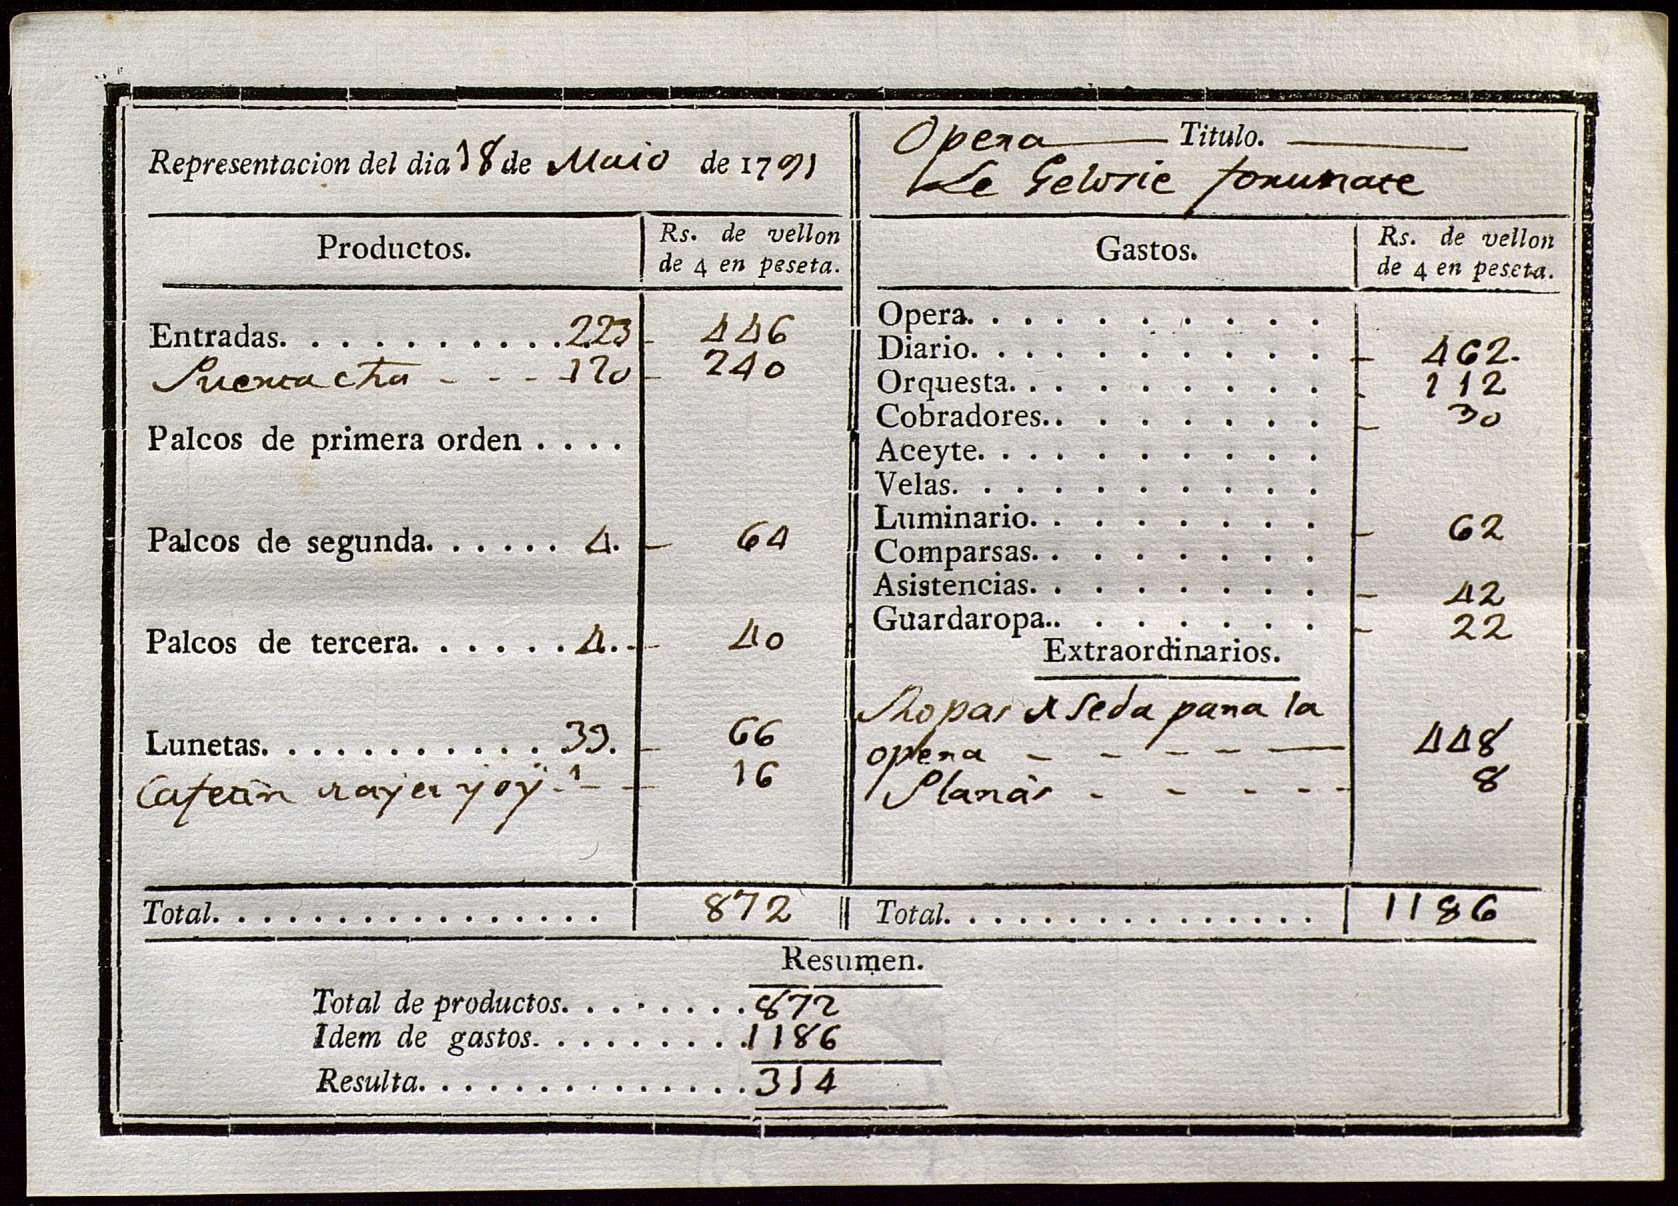 Representacion del dia 18 de Maio de 1791
Opera Titulo.
Le Gelosie fortunate
Productos.
Rs. de vellon
de 4 en peseta.
Entradas. . . . . . . . . . . 223 - 446
120 - 240
Palcos de primera orden . . . .
Palcos de segunda. . . . . . 4. - 64
Palcos de tercera. . . . . . . 4. - 40
Lunetas. . . . . . . . . . . . 33. - 66
1 - - 16
Total. . . . . . . . . . . . . . . . . 872
Gastos.
Rs. de vellon
de 4 en peseta.
Opera. . . . . . . . . .
Diario. . . . . . . . . . - 462.
Orquesta. . . . . . . . . - 112
Cobradores.. . . . . . . - 30
Aceyte. . . . . . . . . .
Velas. . . . . . . . . .
Luminario. . . . . . . . - 62
Comparsas. . . . . . . .
Asistencias. . . . . . . . - 42
Guardaropa.. . . . . . . - 22
Extraordinarios.
Ropas de seda para la
opera - - - - - 448
Planas - - - - - 8
Total. . . . . . . . . . . . . . . . 1186
Resumen.
Total de productos. . . . . . . . 872
Idem de gastos. . . . . . . . . 1186
Resulta. . . . . . . . . . . . . . 314